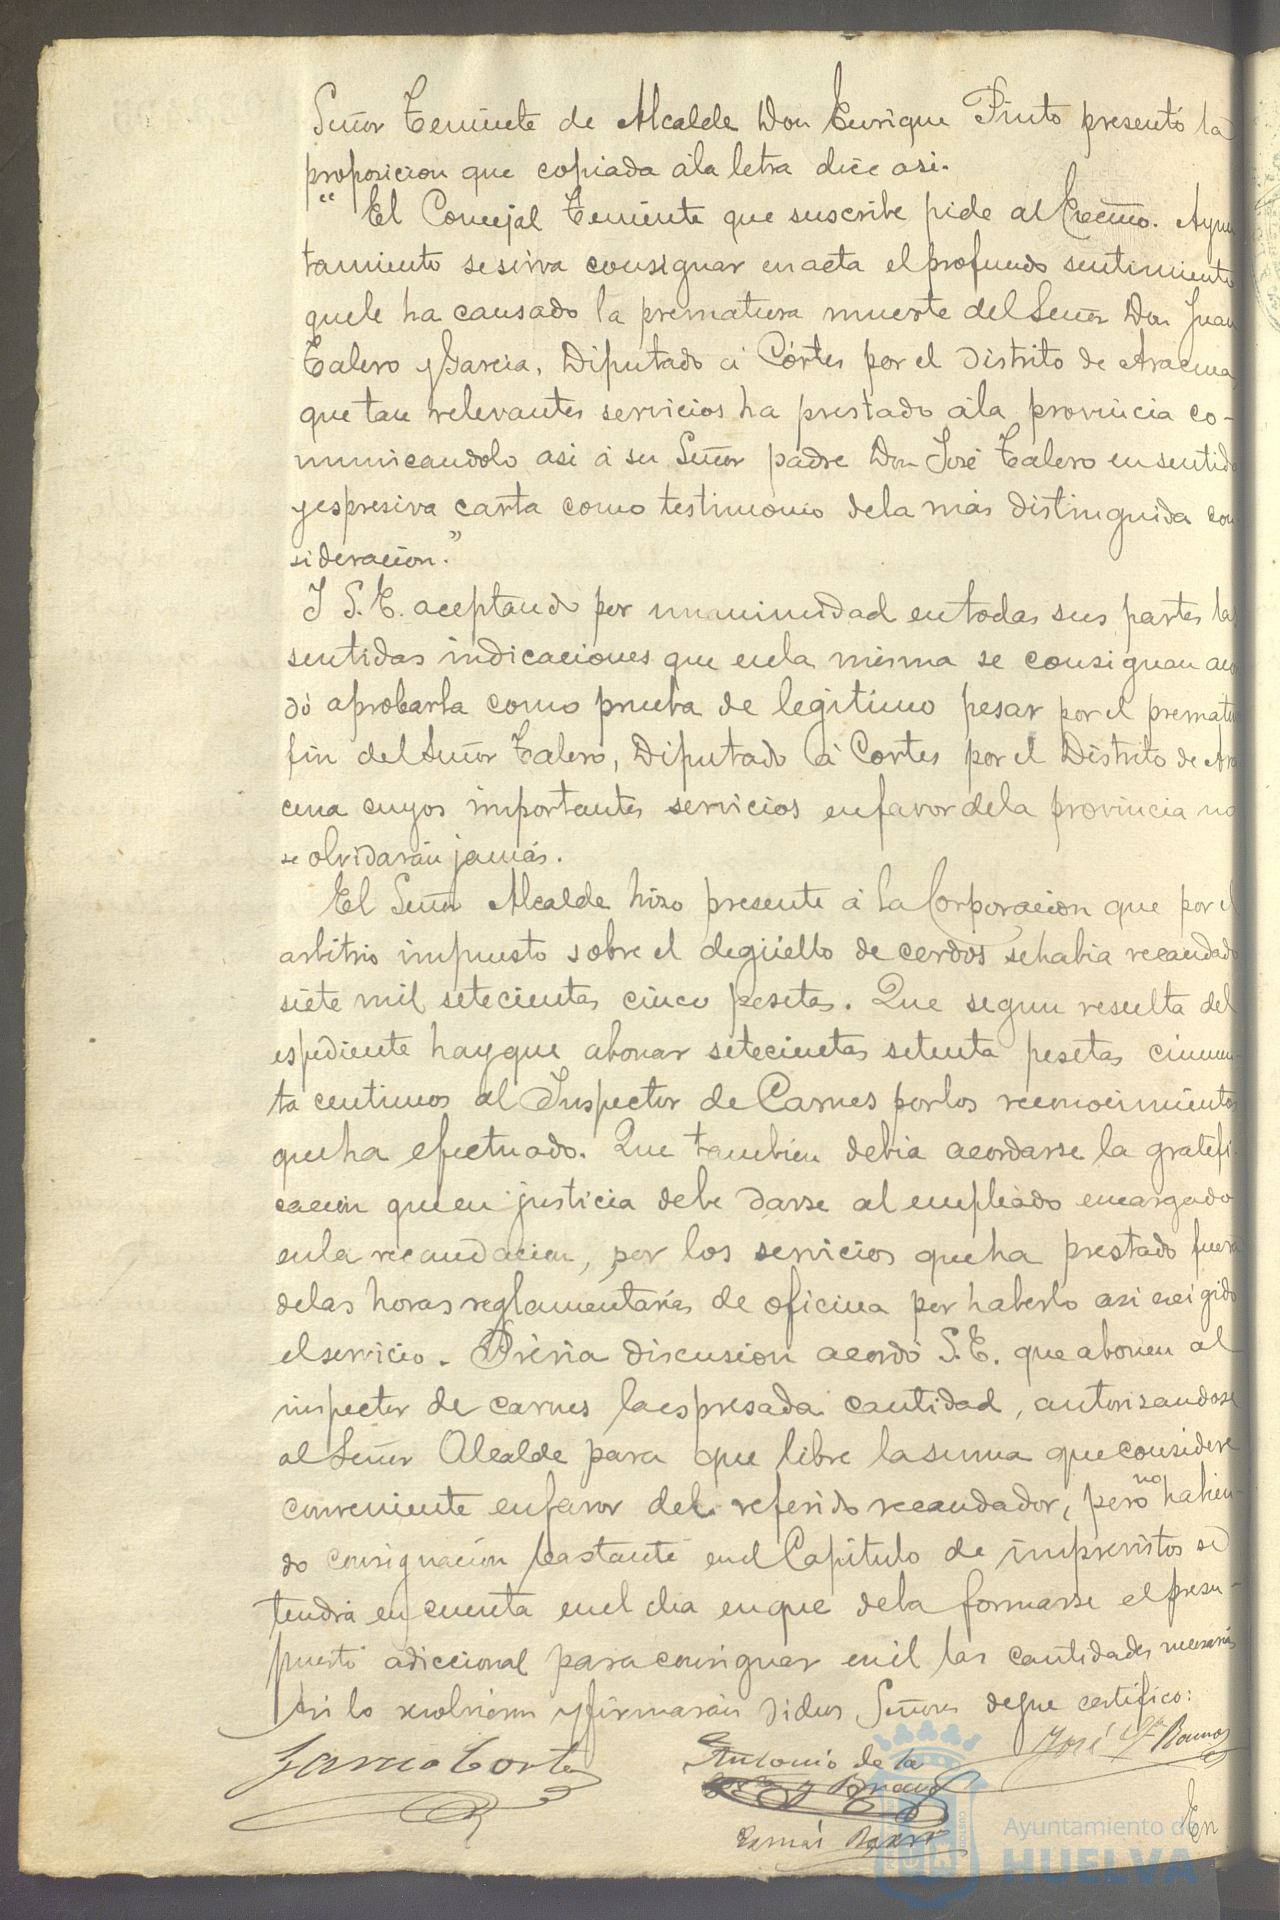 Señor Teniente de Alcalde Don Enrique Pinto presentó la
proposicion que copiada á la letra dice asi.
" El Concejal Teniente que suscribe pide al Excmo. Ayun
tamiento se sirva consignar en acta el profundo sentimiento
que le ha causado la prematura muerte del Señor Don Juan
Talero y Garcia, Diputado á Córtes por el distrito de Aracena,
que tan relevantes servicios ha prestado á la provincia co-
municandolo asi á su Señor padre Don José Talero en sentida
y espresiva carta como testimonio de la más distinguida con
sideracion."
Y S. E. aceptando por unanimidad en todas sus partes las
sentidas indicaciones que en la misma se consignan acor
dó aprobarla como prueba de legítimo pesar por el prematu
fin del Señor Talero, Diputado á Cortes por el Distrito de Ara
cena cuyos importantes servicios en favor de la provincia no
se olvidarán jamás.
El Señor Alcalde hizo presente á la Corporacion que por el
arbitrio impuesto sobre el degüello de cerdos se habia recaudado
siete mil setecientas cinco pesetas. Que segun resulta del
espediente hay que abonar setecientas setenta pesetas cincuen-
ta centimos al Inspector de Carnes por los reconocimientos
que ha efectuado. Que tambien debia acordarse la gratifi-
cacion que en justicia debe darse al empleado encargado
en la recaudacion, por los servicios que ha prestado fuera
de las horas reglamentarias de oficina por haberlo asi exigido
el servicio. Prévia discusion acordó S. E. que abonen al
inspector de carnes la espresada cantidad, autorizandose
al Señor Alcalde para que libre la suma que considere
conveniente en favor del referido recaudador, pero no habien-
do consignacion bastante en el Capítulo de imprevistos se
tendrá en cuenta en el dia en que deba formarse el presu-
puesto adiccional para consignar en él las cantidades necesarias
Asi lo resolvieron y firmarán dichos Señores de que certifico:
Garcia Cortes
Antonio de la
José Gª Ramos
y Bravo
Tomás
En
Ayuntamiento de
HUELVA